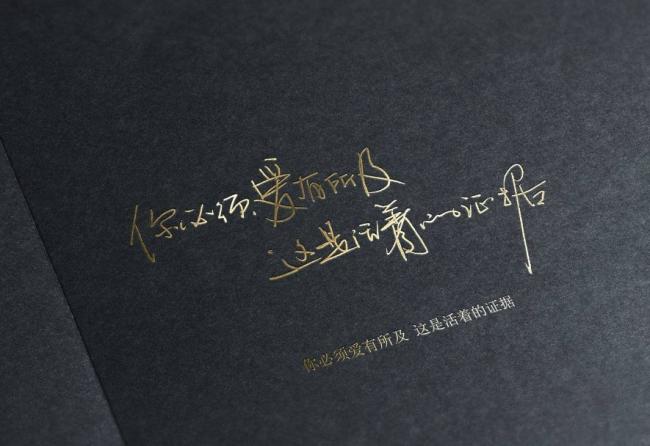 你必须爱有所及
这是活着的证据
你必须爱有所及 这是活着的证据